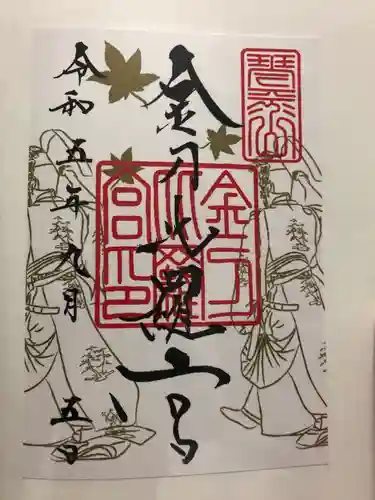 琴平山
金刀比羅宮
金刀
比羅
宮印
令和五年九月五日